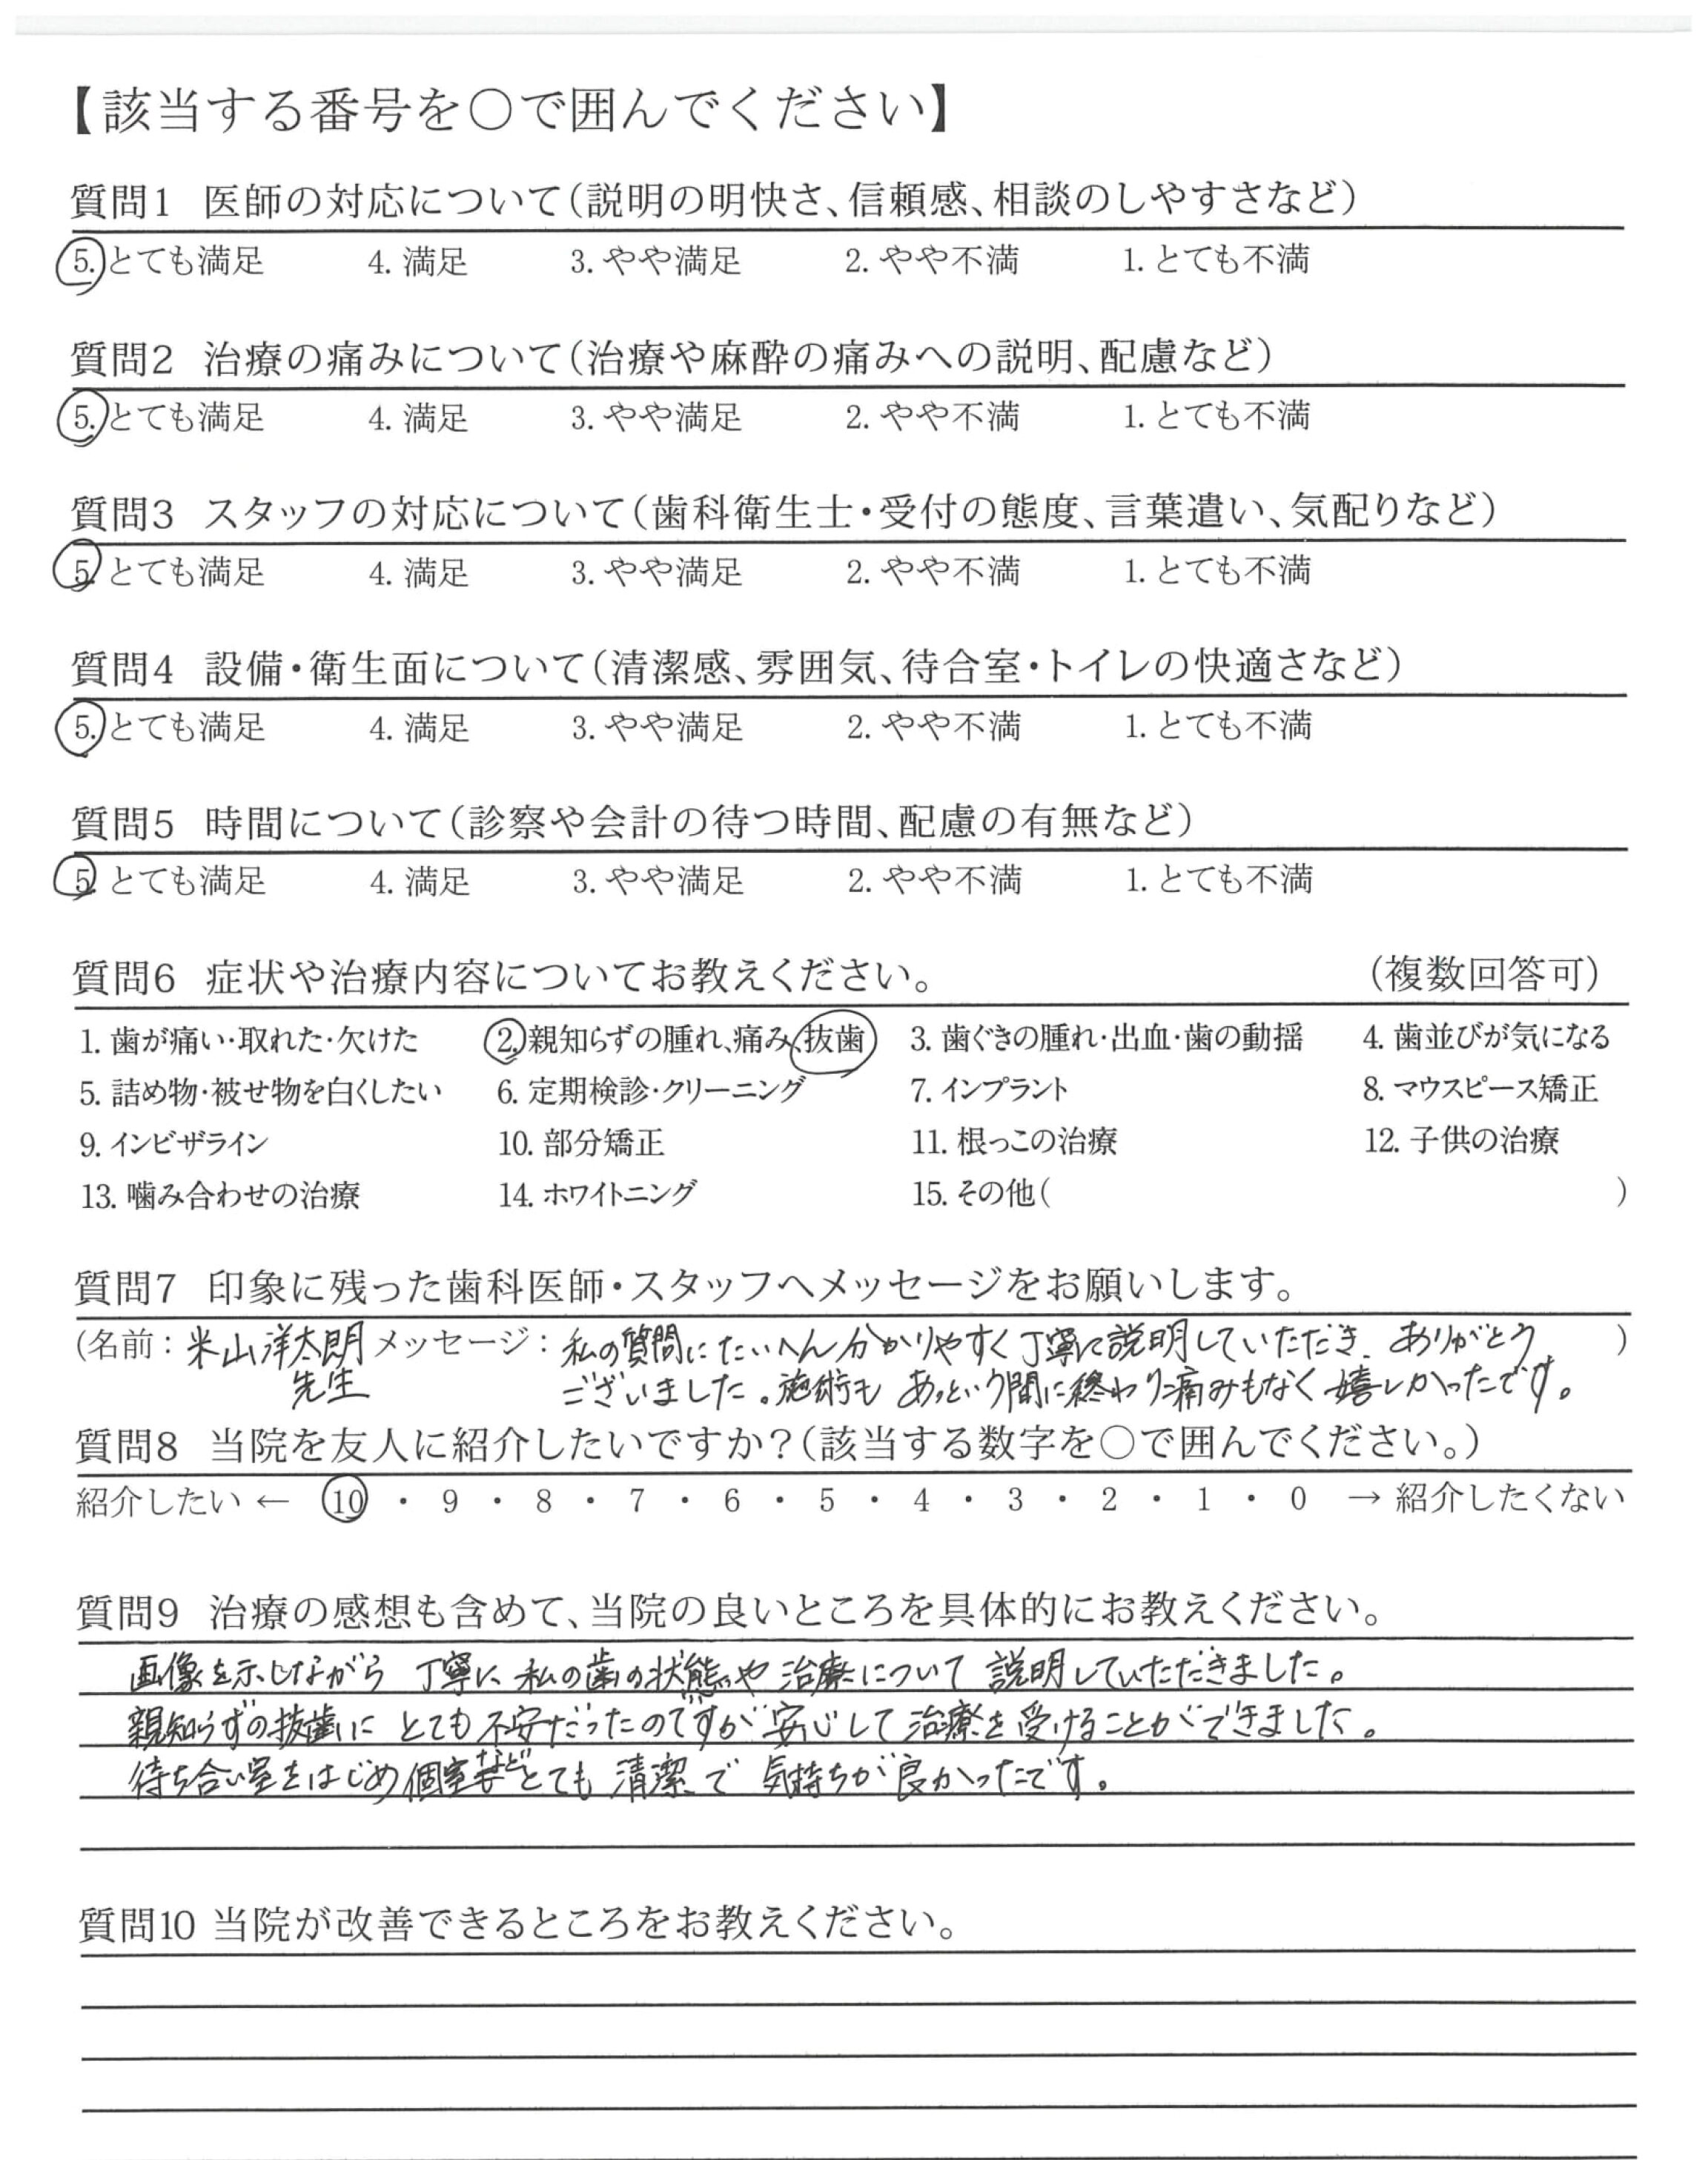 【該当する番号を○で囲んでください】
質問1 医師の対応について(説明の明快さ、信頼感、相談のしやすさなど)
5. とても満足 4. 満足 3. やや満足 2. やや不満 1. とても不満
質問2 治療の痛みについて(治療や麻酔の痛みへの説明、配慮など)
5. とても満足 4. 満足 3. やや満足 2. やや不満 1. とても不満
質問3 スタッフの対応について(歯科衛生士・受付の態度、言葉遣い、気配りなど)
5. とても満足 4. 満足 3. やや満足 2. やや不満 1. とても不満
質問4 設備・衛生面について(清潔感、雰囲気、待合室・トイレの快適さなど)
5. とても満足 4. 満足 3. やや満足 2. やや不満 1. とても不満
質問5 時間について(診察や会計の待つ時間、配慮の有無など)
5. とても満足 4. 満足 3. やや満足 2. やや不満 1. とても不満
質問6 症状や治療内容についてお教えください。 (複数回答可)
1. 歯が痛い・取れた・欠けた 2. 親知らずの腫れ、痛み、抜歯 3. 歯ぐきの腫れ・出血・歯の動揺 4. 歯並びが気になる
5. 詰め物・被せ物を白くしたい 6. 定期検診・クリーニング 7. インプラント 8. マウスピース矯正
9. インビザライン 10. 部分矯正 11. 根っこの治療 12. 子供の治療
13. 噛み合わせの治療 14. ホワイトニング 15. その他( )
質問7 印象に残った歯科医師・スタッフへメッセージをお願いします。
(名前：米山洋太朗 メッセージ：私の質問にたいへん分かりやすく丁寧に説明していただき、ありがとう )
先生 ございました。施術もあっという間に終わり痛みもなく嬉しかったです。
質問8 当院を友人に紹介したいですか？(該当する数字を○で囲んでください。)
紹介したい ← 10 ・ 9 ・ 8 ・ 7 ・ 6 ・ 5 ・ 4 ・ 3 ・ 2 ・ 1 ・ 0 → 紹介したくない
質問9 治療の感想も含めて、当院の良いところを具体的にお教えください。
画像を示しながら 丁寧に 私の歯の状態や 治療について 説明していただきました。
親知らずの抜歯に とても不安だったのですが 安心して治療を受けることができました。
待ち合い室をはじめ個室などとても 清潔で 気持ちが良かったです。
質問10 当院が改善できるところをお教えください。